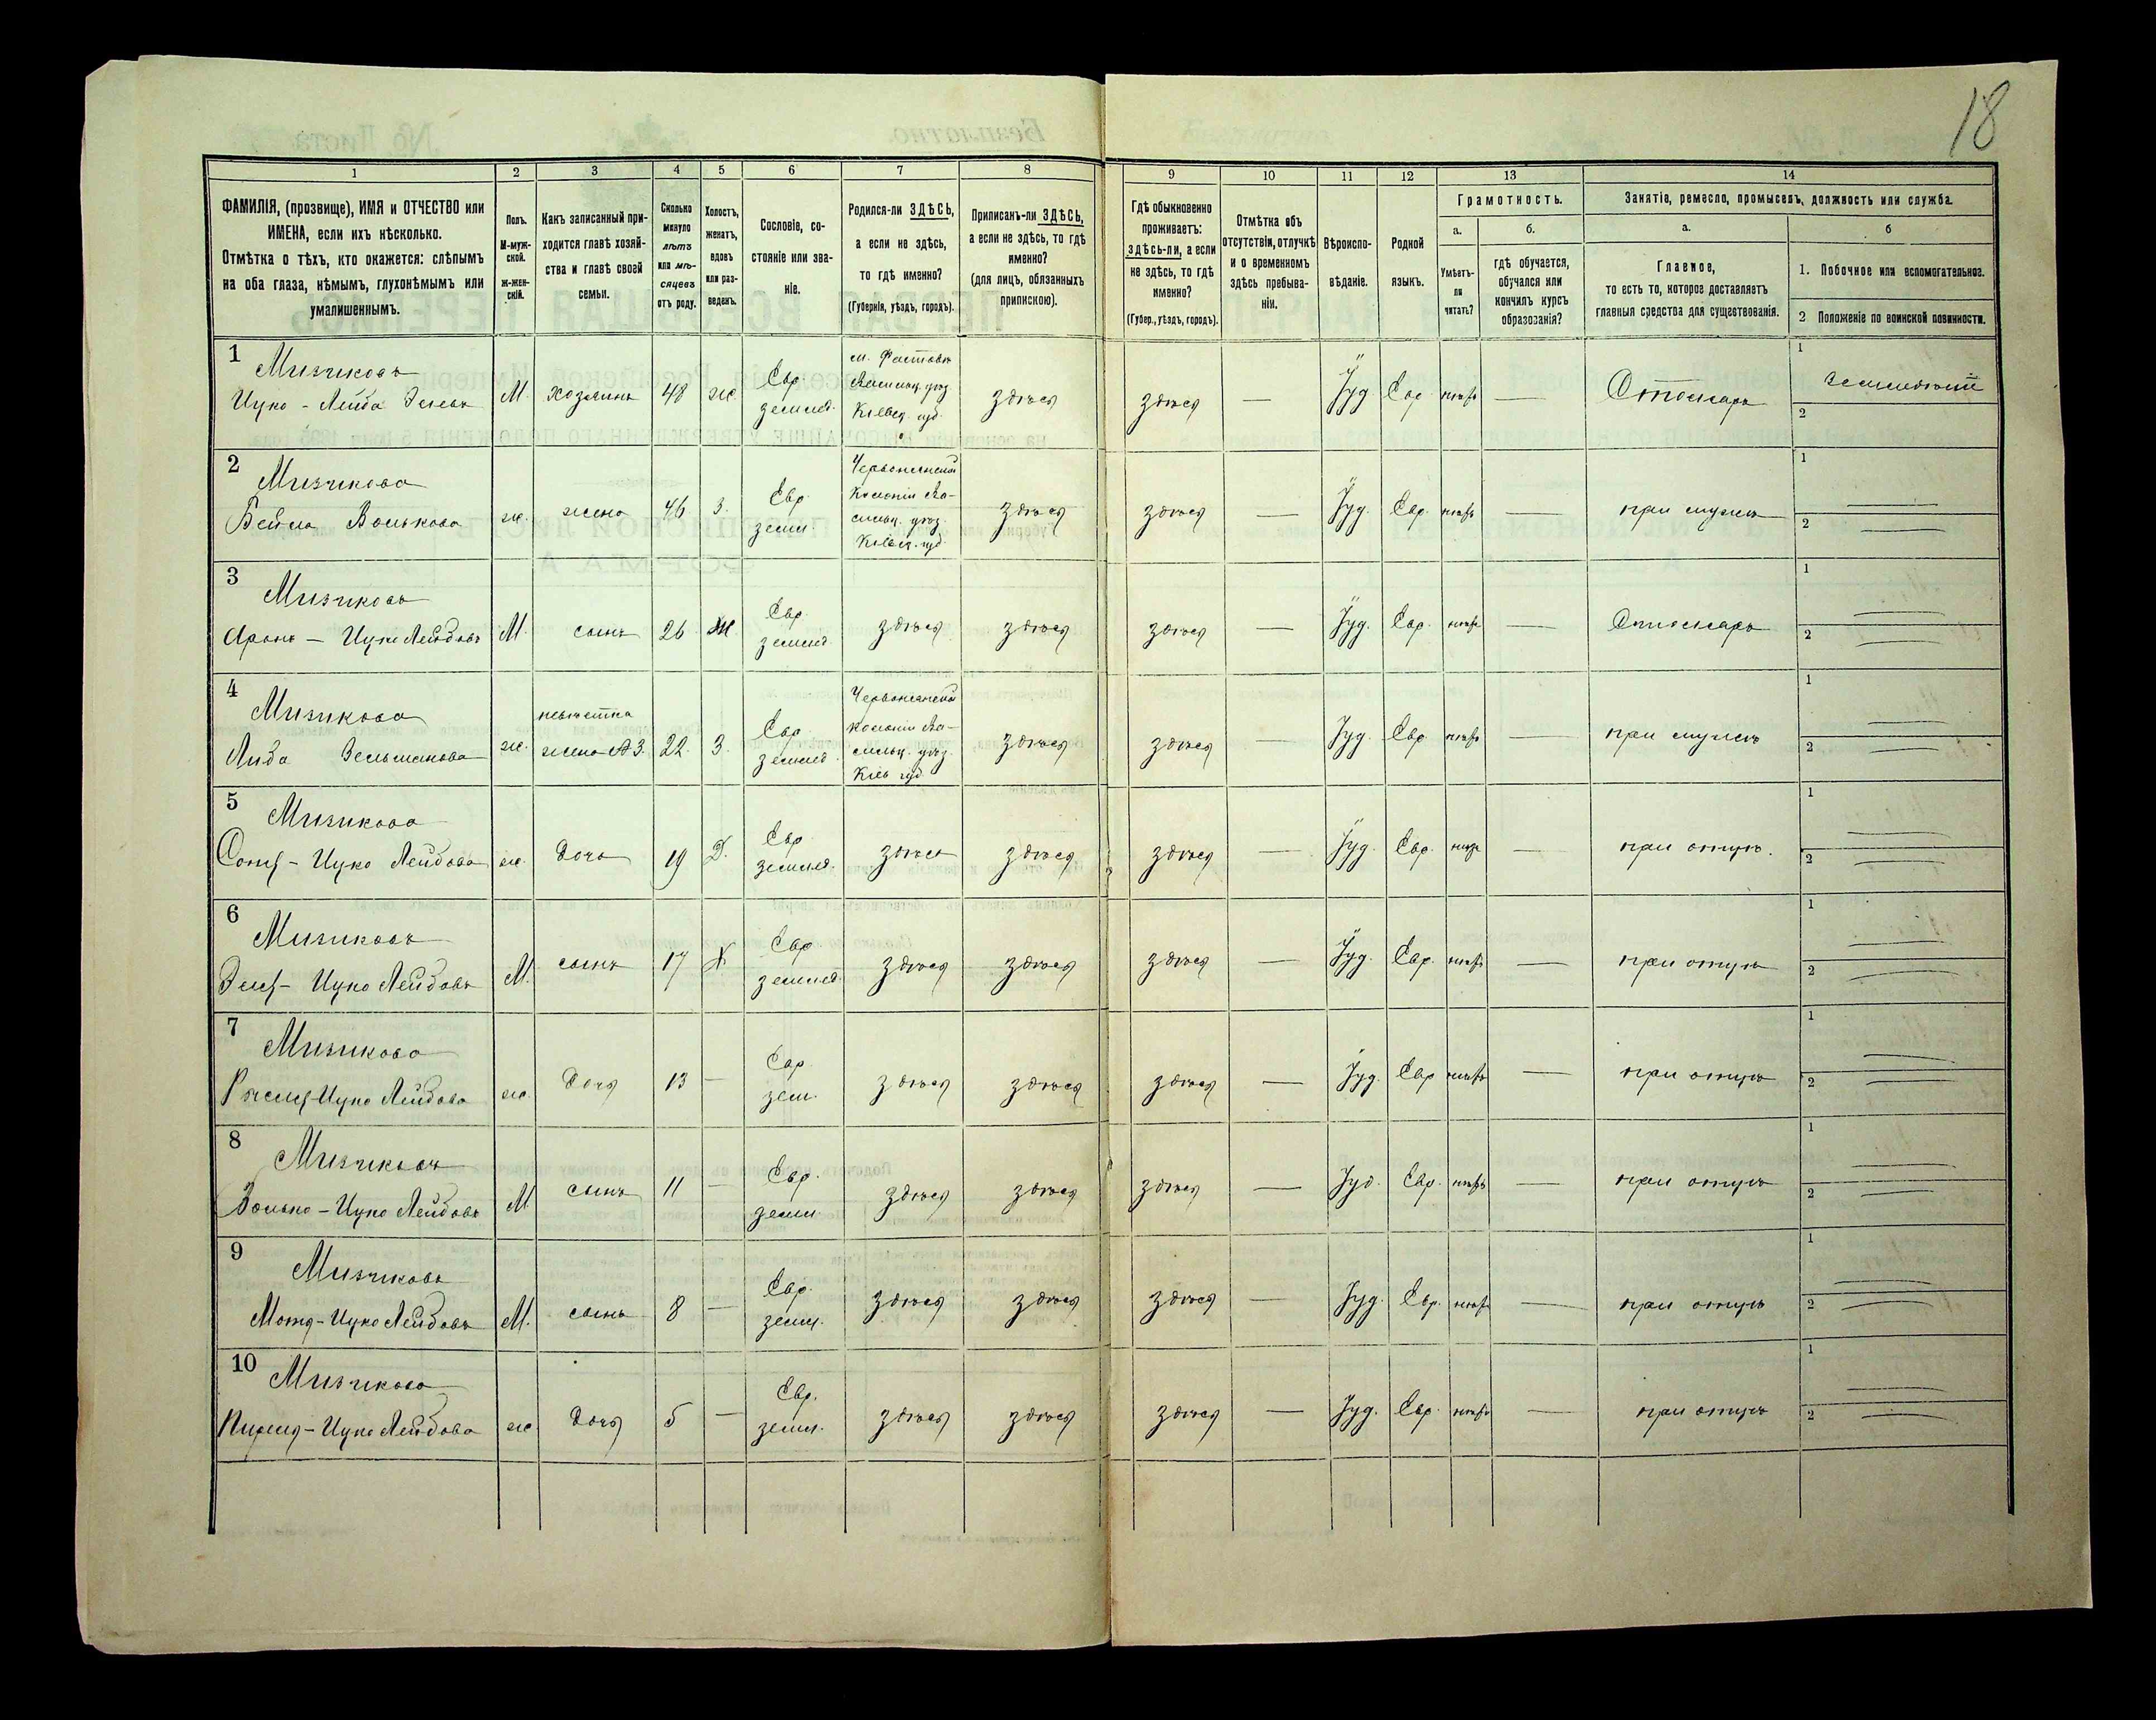 18
1 2 3 4 5 6 7 8 9 10 11 12 13 14
ФАМИЛІЯ, (прозвище), ИМЯ и ОТЧЕСТВО или
ИМЕНА, если ихъ нѣсколько.
Отмѣтка о тѣхъ, кто окажется: слѣпымъ
на оба глаза, нѣмымъ, глухонѣмымъ или
умалишеннымъ.
Полъ.
М-муж-
ской.
Ж-жен-
скій.
Какъ записанный при-
ходится главѣ хозяй-
ства и главѣ своей
семьи.
Сколько
минуло
лѣтъ
или мѣ-
сяцевъ
отъ роду.
Холостъ,
женатъ,
вдовъ
или раз-
веденъ.
Сословіе, со-
стояніе или зва-
ніе.
Родился-ли ЗДѢСЬ,
а если не здѣсь,
то гдѣ именно?
(Губернія, уѣздъ, городъ).
Приписанъ-ли ЗДѢСЬ,
а если не здѣсь, то гдѣ
именно?
(для лицъ, обязанныхъ
припискою).
Гдѣ обыкновенно
проживаетъ:
здѣсь-ли, а если
не здѣсь, то гдѣ
именно?
(Губер., уѣздъ, городъ).
Отмѣтка объ
отсутствіи, отлучкѣ
и о временномъ
здѣсь пребыва-
ніи.
Вѣроиспо-
вѣданіе.
Родной
языкъ.
Грамотность.
а.
Умѣетъ-
ли
читать?
б.
гдѣ обучается,
обучался или
кончилъ курсъ
образованія?
Занятіе, ремесло, промыселъ, должность или служба.
а.
Главное,
то есть то, которое доставляетъ
главныя средства для существованія.
б
1. Побочное или вспомогательное.
2 Положеніе по воинской повинности.
1
Мизиковъ
Ицко - Лейба Элевъ
М. хозяинъ 48 ж.
Евр.
землед.
м. Фастовъ
Васильк. уѣз.
Кіевск. губ.
здѣсь здѣсь — Іуд. Евр. — Столяръ
1
2
2
Мизикова
Бейла Волькова
ж. жена 46 з.
Евр.
земл.
Червонянской
Колоніи Ва-
сильк. уѣз.
Кіевск. губ.
здѣсь здѣсь — Іуд. Евр. — при мужѣ
1
2
3
Мизиковъ
Аронъ — Ицко Лейбовъ
М. сынъ 26 ж
Евр.
землед.
здѣсь здѣсь здѣсь — Іуд. Евр. — Столяръ
1
2
4
Мизикова
Либа Зельманова
ж.
невѣстка
жена № 3. 22. З.
Евр.
землед.
Червонянской
колоніи Ва-
сильк. уѣз.
Кіев. губ.
здѣсь здѣсь — Іуд. Евр. — при мужѣ
1
2
5
Мизикова
Соня - Ицко Лейбова
ж. дочь 19 Д.
Евр.
землед.
здѣсь здѣсь здѣсь — Іуд. Евр. — при отцѣ.
1
2
6
Мизиковъ
Эля - Ицко Лейбовъ
М. сынъ 17 Х
Евр.
землед.
здѣсь здѣсь здѣсь — Іуд. Евр. — при отцѣ
1
2
7
Мизикова
Ицко Лейбова
ж. дочь 13 —
Евр.
зем.
здѣсь здѣсь здѣсь — Іуд. Евр. — при отцѣ
1
2
8
Мизиковъ
Волько - Ицко Лейбовъ
М сынъ 11 —
Евр.
земл.
здѣсь здѣсь здѣсь — Іуд. Евр. — при отцѣ
1
2
9
Мизиковъ
Мотя - Ицко Лейбовъ
М. сынъ 8 —
Евр.
земл.
здѣсь здѣсь здѣсь — Іуд. Евр. — при отцѣ
1
2
10
Мизикова
Ицко Лейбова
ж. дочь 5 —
Евр.
земл.
здѣсь здѣсь здѣсь — Іуд. Евр. — при отцѣ
1
2